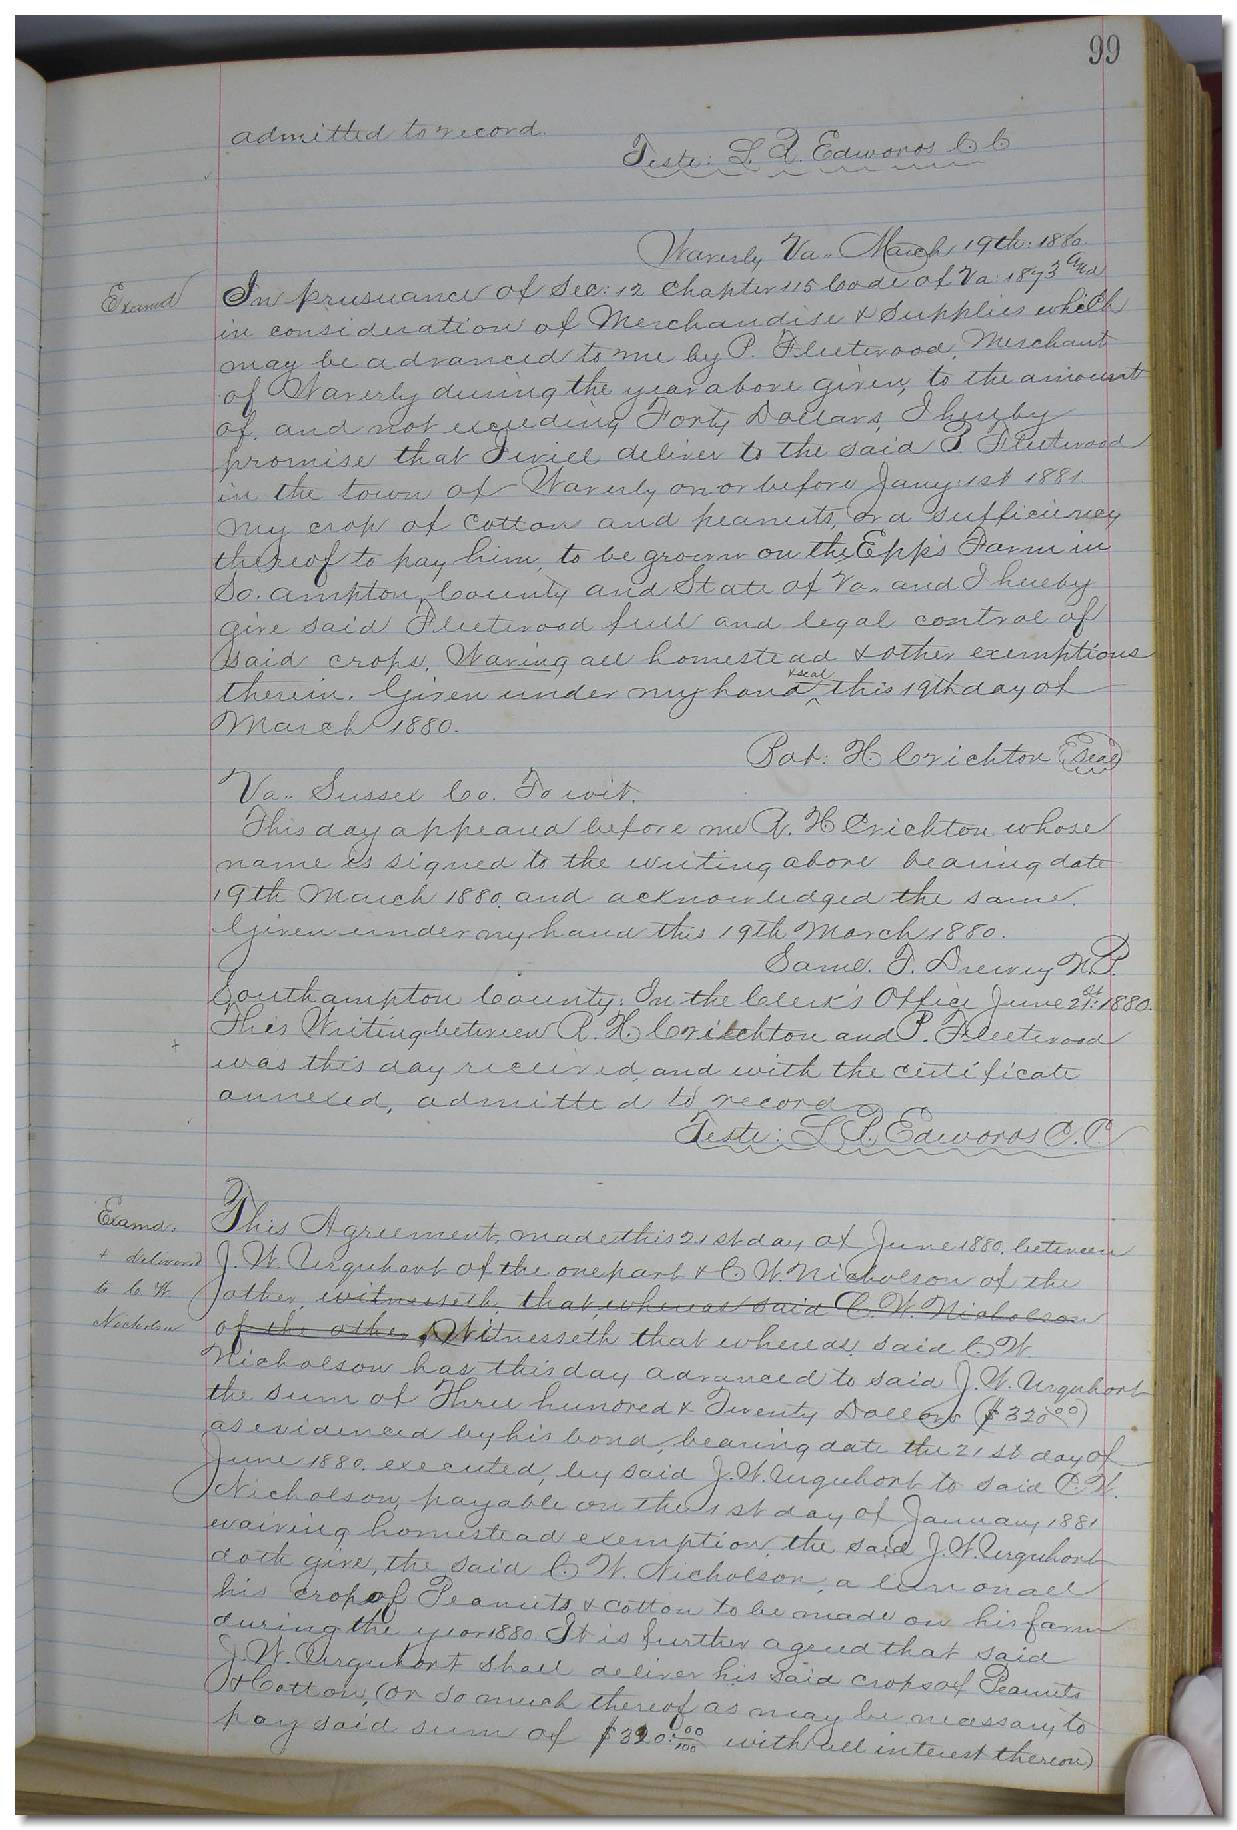 99
admitted to record.
Teste: L. R. Edwards C C
Waverly Va.. March 19th: 1880.
Examd
In prusuance of Sec: 12 Chapter 115 Code of Va: 1873 and
in consideration of Merchandise & Supplies which
may be advanced to me by P. Fleetwood, Merchant
of Waverly during the year above given, to the amount
of and not exceeding Forty Dollars, I hereby
promise that I will deliver to the said P Fleetwood
in the town of Waverly on or before Jany: 1st 1881.
my crop of Cotton and peanuts, or a sufficiency
thereof to pay him, to be grown on the Epps Farm in
So. ampton, County and State of Va.. and I hereby
give said Fleetwood full and legal control of
said crops, Waving all homestead & other exemptions
therein. Given under my hand & seal this 19th day of
March 1880.
Rob: H Crichton (Seal)
Va.. Sussex Co. To wit.
This day appeared before me R. H Crichton whose
name is signed to the writing above bearing date
19th March 1880. and acknowledged the same.
Given under my hand this 19th March 1880.
Saml. T. Drewry N.P.
Southampton County: In the Clerk's Office June 21st: 1880.
This Writing between R. H. Crichton and P. Fleetwood
was this day received, and with the certificate
annexed, admitted to record
Teste: L R. Edwards C. C.
Examd.
+ delivered
to C W
Nicholson
This Agreement, made this 21st day of June 1880, between
J. W. Urquhart of the one part & C W. Nicholson of the
other, witnesseth, that, whereas said C. W. Nicholson
of the other Witnesseth that whereas, said C. W.
Nicholson has this day advanced to said J. W. Urquhart
the sum of Three hundred & Twenty Dollars ($320.00)
as evidenced by his bond, bearing date the 21st day of
June 1880. executed, by said J. W. Urquhart to said C. W.
Nicholson, payable on the 1st day of January 1881
waiving homestead exemption, the said J. W. Urquhart
doth give, the said C. W. Nicholson, a lien on all
his crop of Peanuts & Cotton to be made on his farm
during the year 1880 It is further agreed that said
J. W. Urquhart shall deliver his said crops of Peanuts
& Cotton, (or so much thereof as may be necessary to
pay said sum of $320.00/100 with all interest thereon)